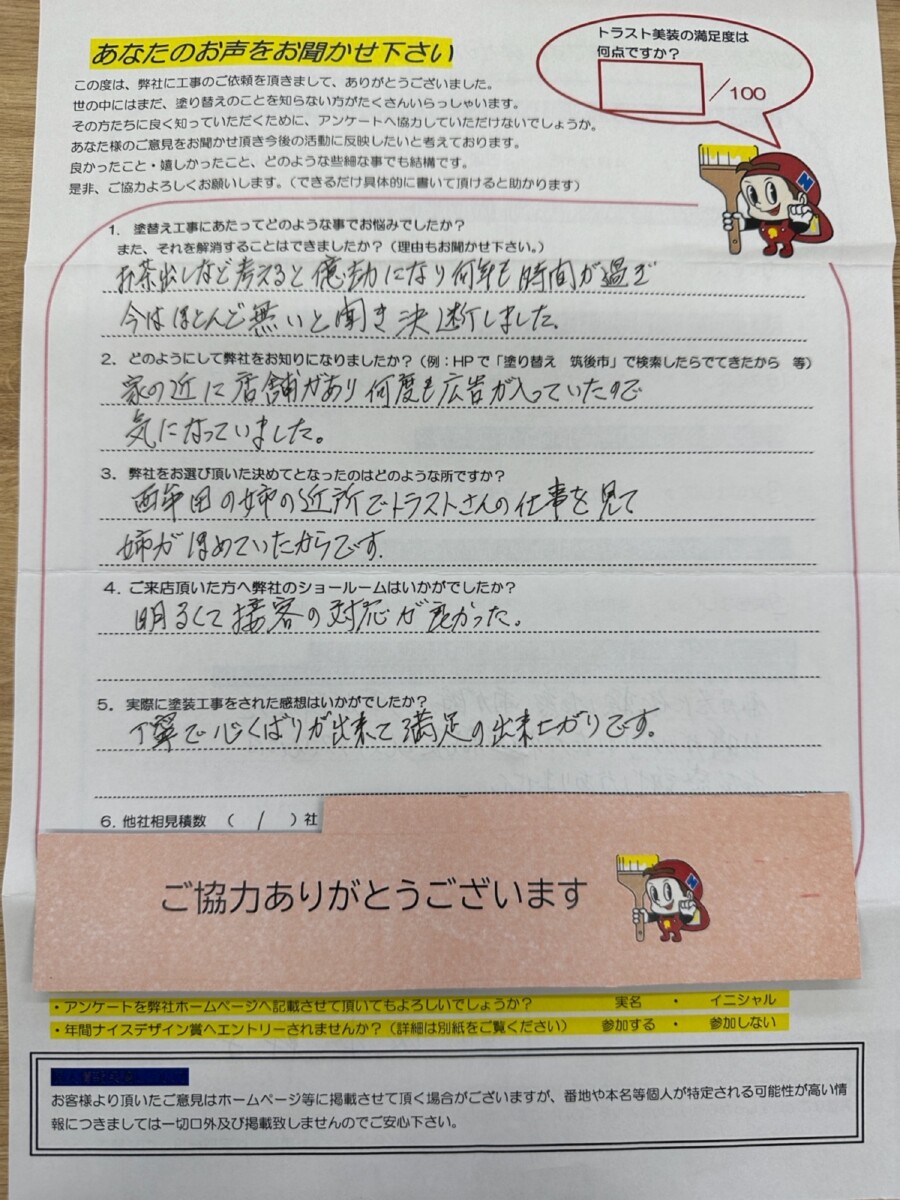 あなたのお声をお聞かせ下さい
トラスト美装の満足度は
何点ですか？
／100
この度は、弊社に工事のご依頼を頂きまして、ありがとうございました。
世の中にはまだ、塗り替えのことを知らない方がたくさんいらっしゃいます。
その方たちに良く知っていただくために、アンケートへ協力していただけないでしょうか。
あなた様のご意見をお聞かせ頂き今後の活動に反映したいと考えております。
良かったこと・嬉しかったこと、どのような些細な事でも結構です。
是非、ご協力よろしくお願いします。（できるだけ具体的に書いて頂けると助かります）
1．塗替え工事にあたってどのような事でお悩みでしたか？
また、それを解消することはできましたか？（理由もお聞かせ下さい。）
お茶出しなど考えると億劫になり何年も時間が過ぎ
今はほとんど無いと聞き決断しました。
2．どのようにして弊社をお知りになりましたか？（例：HPで「塗り替え　筑後市」で検索したらでてきたから　等）
家の近に店舗があり何度も広告が入っていたので
気になっていました。
3．弊社をお選び頂いた決めてとなったのはどのような所ですか？
西牟田の姉の近所でトラストさんの仕事を見て
姉がほめていたからです.
4．ご来店頂いた方へ弊社のショールームはいかがでしたか？
明るくて接客の対応が良かった。
5．実際に塗装工事をされた感想はいかがでしたか？
丁寧で心くばりが出来て満足の出来上がりです。
6．他社相見積数　（　/　）社
ご協力ありがとうございます
・アンケートを弊社ホームページへ記載させて頂いてもよろしいでしょうか？　実名　・　イニシャル
・年間ナイスデザイン賞へエントリーされませんか？（詳細は別紙をご覧ください）　参加する　・　参加しない
お客様より頂いたご意見はホームページ等に掲載させて頂く場合がございますが、番地や本名等個人が特定される可能性が高い情
報につきましては一切口外及び掲載致しませんのでご安心下さい。